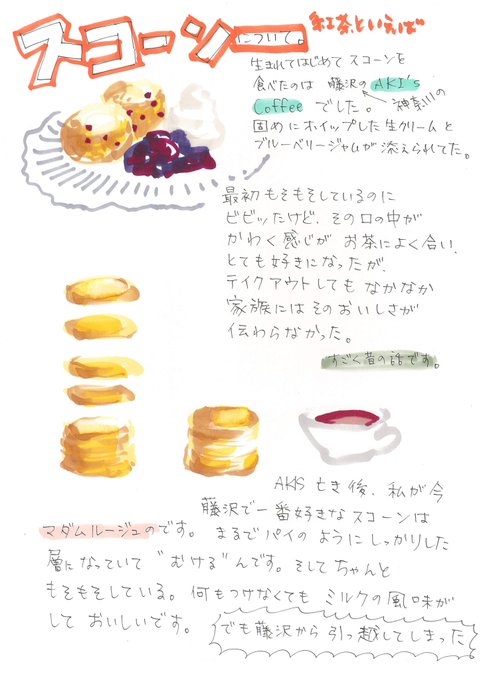 スコーンについて。
紅茶といえば
生まれてはじめて スコーンを
食べたのは 藤沢の AKI's
神奈川の
Coffee でした。
固めにホイップした生クリームと
ブルーベリージャムが添えられてた。
最初もそもそしているのに
ビビッたけど、その口の中が
かわく感じが お茶によく合い、
とても好きになったが、
テイクアウトしても なかなか
家族にはそのおいしさが
伝わらなかった。
すごく昔の話です。
AKIS 亡き後、私が今
藤沢で一番好きな スコーンは
マダムルージュのです。 まるでパイの ようにしっかりした
層になっていて "むける"んです。そしてちゃんと
もそもそしている。何もつけなくても ミルクの風味が
して おいしいです。
でも藤沢から引っ越してしまった